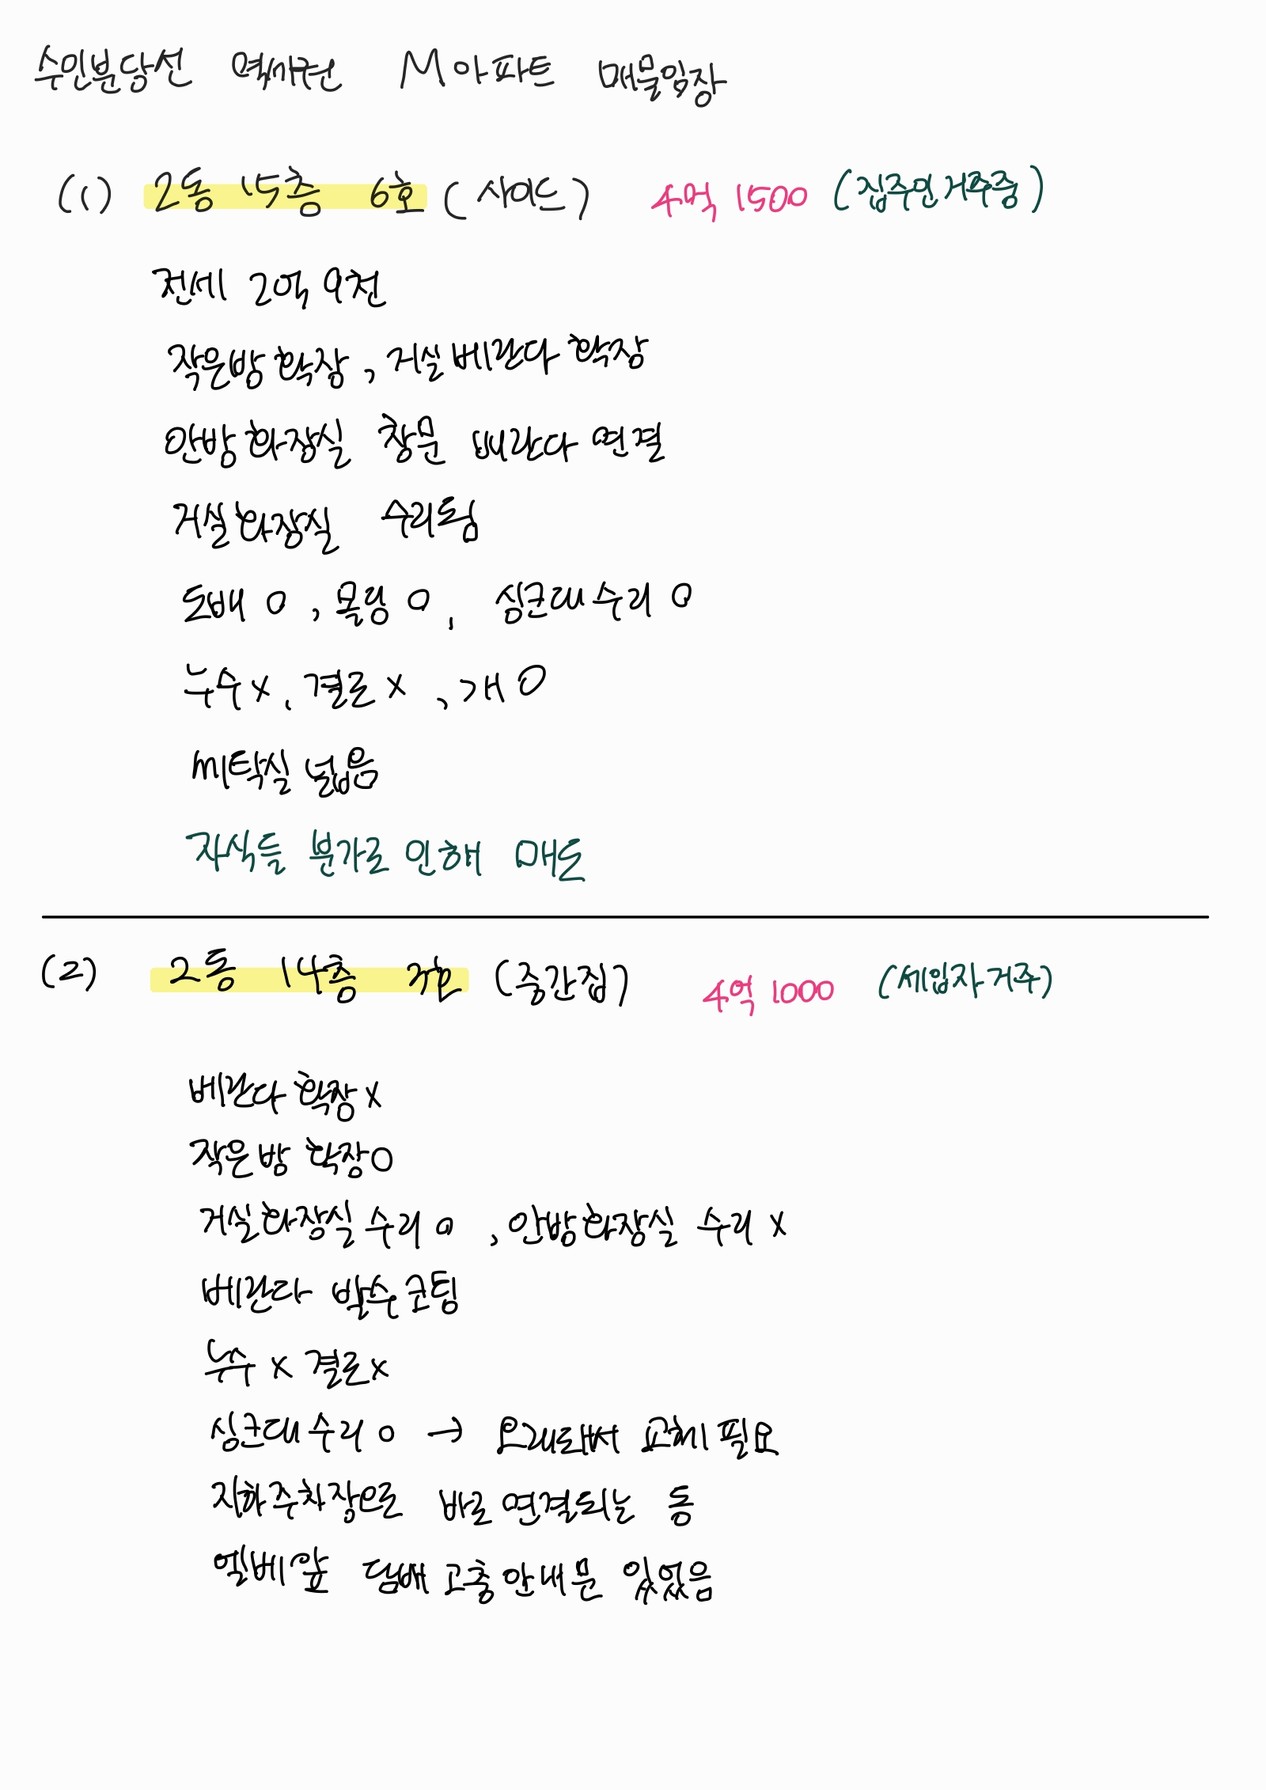 수인분당선 역세권 M아파트 매물임장
(1) 2동 15층 6호 (사이드) 4억 1500 (집주인거주중)
전세 2억 9천
작은방 확장, 거실베란다 확장
안방화장실 창문 베란다 연결
거실화장실 수리됨
도배 O, 몰딩 O, 싱크대수리 O
누수 x, 결로 x, 개 O
세탁실 넓음
자식들 분가로 인해 매도
(2) 2동 14층 호 (중간집) 4억 1000 (세입자거주)
베란다 확장 x
작은방 확장 O
거실화장실 수리 O, 안방화장실 수리 x
베란다 발수코팅
누수 x 결로 x
싱크대 수리 O → 오래돼서 교체 필요
지하주차장으로 바로 연결되는 동
엘베앞 담배 고충안내문 있었음